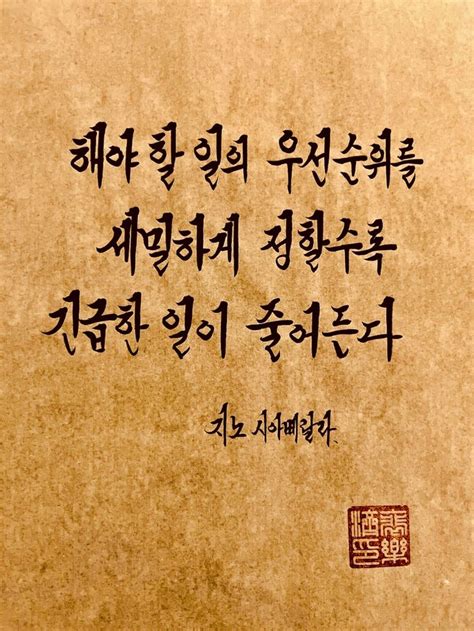 해야 할 일의 우선순위를
세밀하게 정할수록
긴급한 일이 줄어든다
지노 시아빠랄라